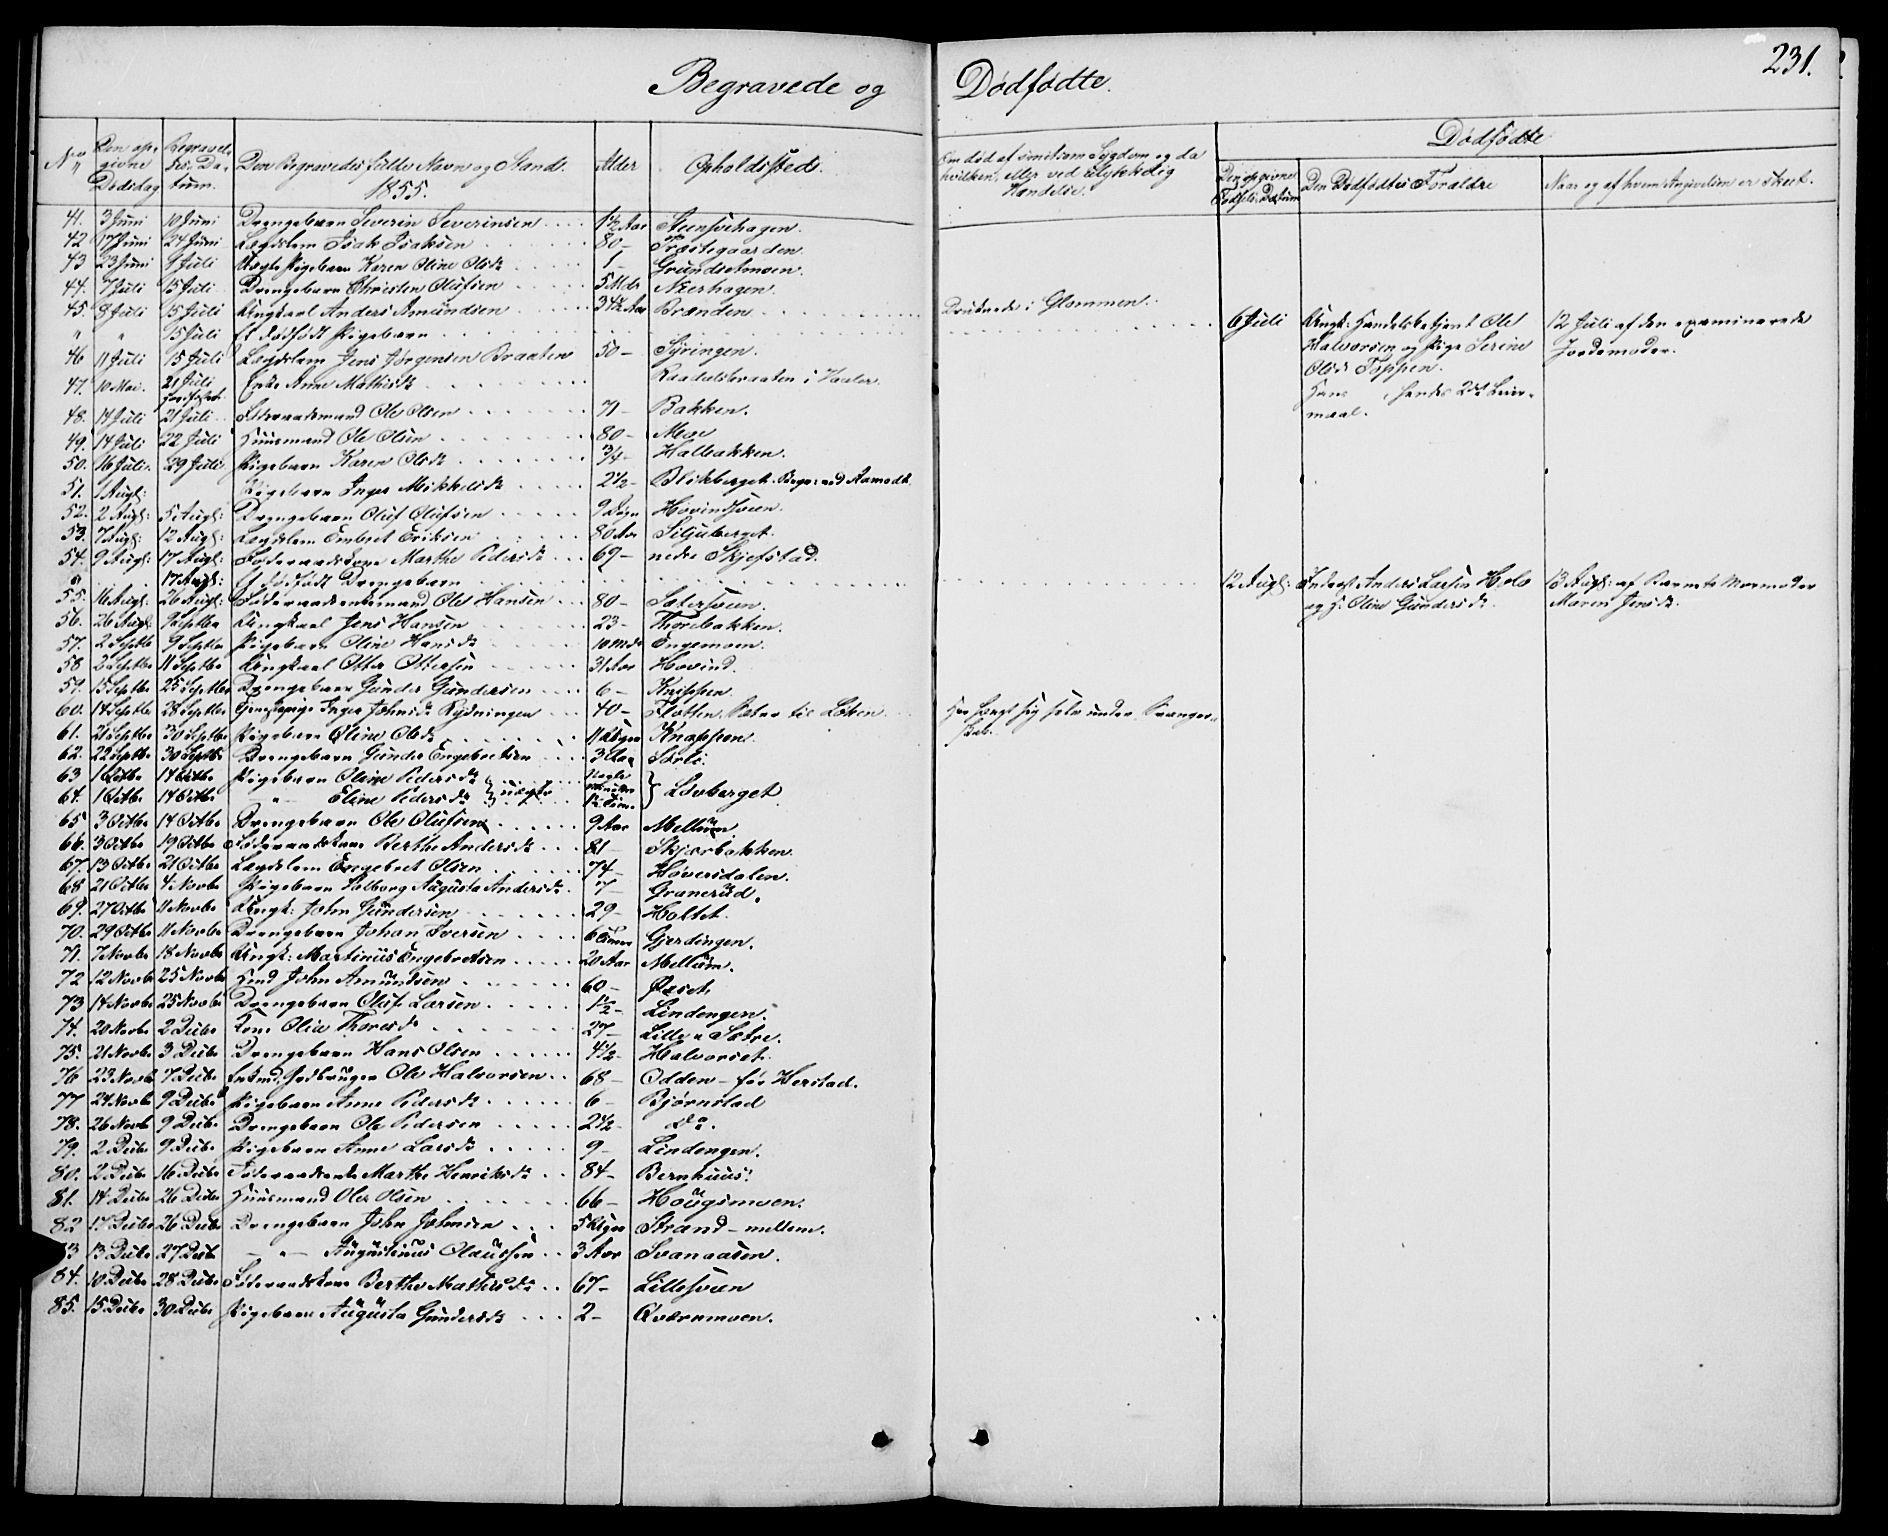 Begravede og Dødfødte.
231.
No Den opgivne Dødsdag Begravelses-Datum. Den Begravedes fulde Navn og Stand. Alder Opholdssted.
1855.
Om død af smitsom Sygdom og da hvilken, eller ved ulykkelig Hændelse.
Dødfødte
Den opgivne Fødsels-Datum Den Dødfødtes Forældre Naar og af hvem Angivelsen er skeet.
41. 3 Juni 10 Juni Drengebarn Severin Severinsen 1½ Aar Steensvehagen.
42 17 Juni 24 Juni Lægdslem Isak Isaksen 80 - Præstegaarden.
43 23 Juni 8 Juli Uægte Pigebarn Karen Oline Olsdr 1 - Grundsetmoen.
44. 7 Juli 15 Juli Drengebarn Christen Olufsen 5 Mdr Nærhagen.
45. 8 Juli 15 Juli Ungkarl Anders Amundsen 34½ Aar Brænden. Druknede i Glommen.
" " 15 Juli Et dødfødt Pigebarn 6 Juli Ungk: Handelsbetjent Ole 12 Juli af den examinerede
Halvorsen og Pige Serine Jordemoder.
Olsdr Toppen.
Hans , hendes 2det Leier-
maal.
46 11 Juli 15 Juli Lægdslem Jens Jørgensen Braaten 50 - Syringen.
47. 10 Mai. 21 Juli Enke Anne Mathisdr Raadelsbraaten i Vaaler.
48. 14 Juli 21 Juli Føderaadsmand Ole Olsen 71 - Bakken.
49. 14 Juli 22 Juli Huusmand Ole Olsen 80 - Moe
50. 16 Juli. 29 Juli. Pigebarn Karen Olsdr ¾ - Halbakken.
51. 1 Augt: Pigebarn Inger Mikkelsdr 2½ - Blikberget Begr: ved Aamodt
52. 2 Augt: 5 Augt: Drengebarn Oluf Olufsen 9 Døgn Hovindsveen.
53. 7 Augt: 12 Augt: Lægdslem Embret Eriksen 80 Aar Siljuberget.
54. 9 Augt: 17 Augt: Føderaadskone Marthe Pedersdr 69 - nedre Skjefstad.
" 17 Augt: Et dødfødt Drengebarn 12 Augt: Inderst Anders Larsen Holo 13 Augt: af Barnets Mormoder
og H: Oline Gundersdr. Maren Jensdr.
55. 16 Augt: 26 Augt: Føderaadsenkemand Ole Hansen 80 - Sætersveen.
56. 26 Augt. Septbr Ungkarl Jens Hansen 23 - Thorebakken.
57. 2 Septbr 9 Septbr Pigebarn Oline Hansdr 10 Mdr Engemoen.
58 2 Septbr 11 Septbr Ungkarl Otter Ottersen 31 Aar Hovind.
59. 15 Septbr 25 Septbr Drengebarn Gunder Gundersen 6 - Knippen.
60. 14 Septbr 28 Septbr Inger Johnsdr Rydningen 40 - Har hængt sig selv under
61. 21 Septbr 30 Septbr Pigebarn Oline Olsdr 11 Uger Knappen.
62. 22 Septbr 30 Septbr Drengebarn Gunder Engebretsen 3 Sorli.
63 1 Octbr 14 Octbr Pigebarn Oline Pedersdr } uægte } Løvberget
64. 1 Octbr 14 Octbr -"- Eline Pedersdr
65 3 Octbr 14 Octbr Drengebarn Ole Olufsen 9 Aar Mellum
66. 3 Octbr 19 Octbr Føderaadskone Berthe Andersdr 81 - Skjærbakken.
67. 13 Octbr 21 Octbr Lægdslem Engebret Olsen 74 - Høversdalen.
68 21 Octbr 4 Novbr Pigebarn Solborg Augusta Andersdr. 7 - Granerud.
69. 27 Octbr 11 Novbr Ungk: John Gundersen 29 - Holtet.
70. 29 Octbr 11 Novbr Drengebarn Johan Iversen 6 Gjerdingen.
71. 7 Novbr 18 Novbr Ungk: Martinius Engebretsen 20 Aar Mellum.
72 12 Novbr 25 Novbr John Amundsen 60 - Øæset.
73 14 Novbr 25 Novbr Drengebarn Oluf Larsen 1½ - Lindengen.
74. 20 Novbr 2 Decbr Kone Olea Thoresdr 27 - Lille-Sætre.
75. 21 Novbr 3 Decbr Drengebarn Hans Olsen 4½ - Halvorset.
76 23 Novbr 7 Decbr Enkmd: Jordbruger Ole Halvorsen 68 - Odden - før Herstad.
77 24 Novbr 9 Decbr Pigebarn Anne Pedersdr 6 - Bjørnstad
78. 26 Novbr 9 Decbr Drengebarn Ole Pedersen 2½ - do.
79. 2 Decbr 9 Decbr Pigebarn Anne Larsdr 9 - Lindengen.
80. 2 Decbr 16 Decbr Føderaadsenke Marthe Henriksdr 84 - Bernhuus.
81. 14 Decbr 26 Decbr Huusmand Ole Olsen 66 - Hougsmoen.
82 17 Decbr 26 Decbr Drengebarn John Johnsen 5 Uger Strand - mellem.
83 13 Decbr 27 Decbr -"- Augustinus Olaussen 3 Aar Svanaasen.
84. 10 Decbr 28 Decbr Føderaadskone Berthe Mathisdr 67 - Lillesveen
85. 15 Decbr 30 Decbr Pigebarn Augusta Gundersdr 2 - Qværnmoen.